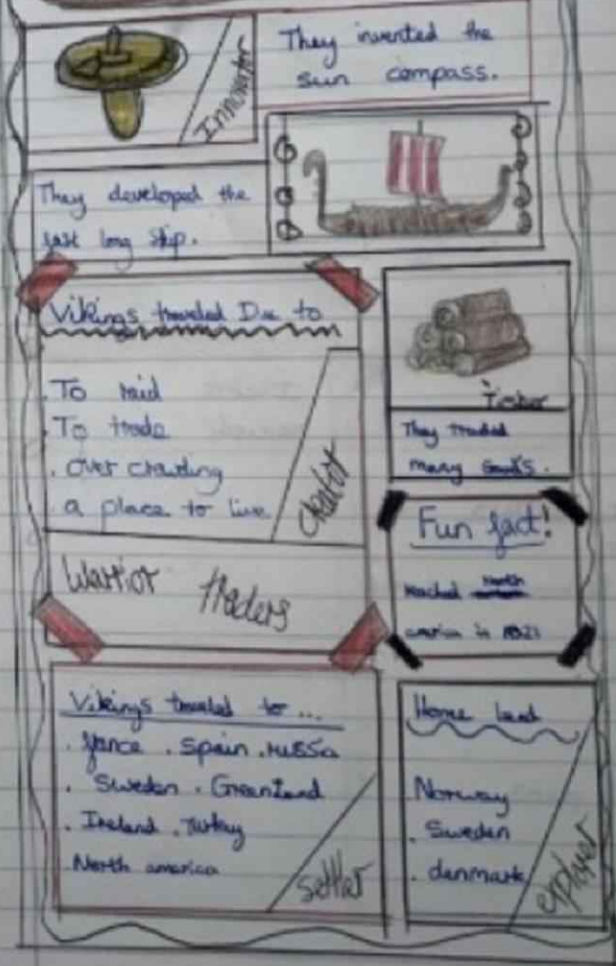 Innovator
They invented the
sun compass.
They developed the
fast long ship.
Vikings traveled Due to
. To raid
. To trade
. over crowding
a place to live
Warrior traders
They traded
many goods.
Fun fact!
reached North
america in 1021
Vikings traveled to ...
. france . Spain . russa
. Sweden . Greenland
. Ireland . Turkey
North america
settler
Home land
Norway
. Sweden
. denmark
explorer